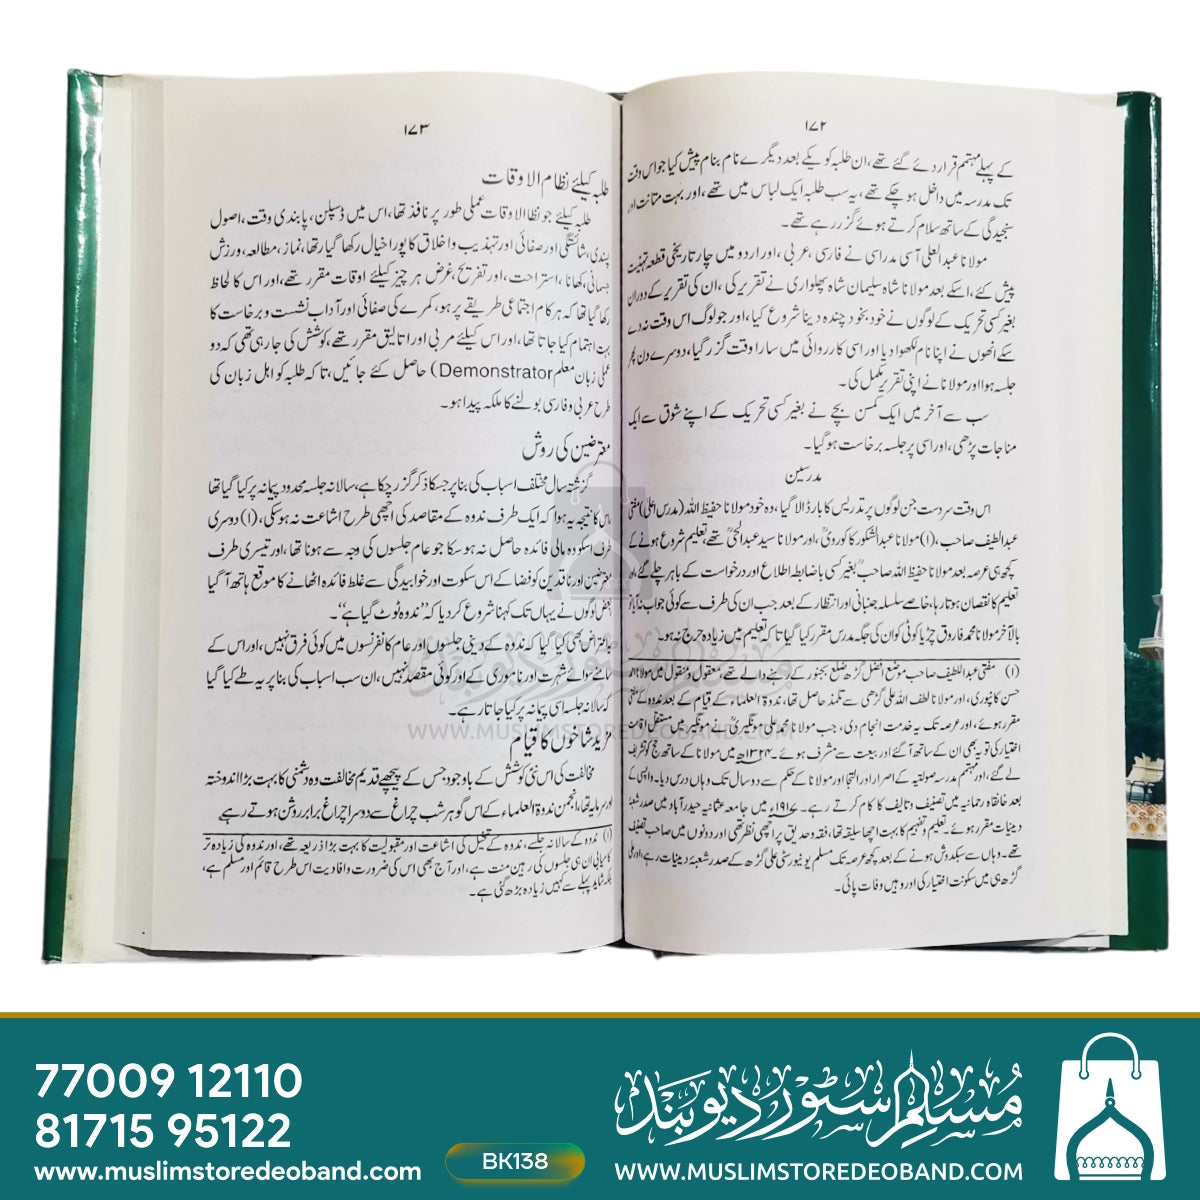 ۱۷۲
کے پہلے مہتمم قرار دئے گئے تھے، ان طلبہ کو یکے بعد دیگرے نام بنام پیش کیا جو اس وقت
تک مدرسہ میں داخل ہو چکے تھے، یہ سب طلبہ ایک لباس میں تھے، اور بہت متانت اور
سنجیدگی کے ساتھ سلام کرتے ہوئے گزر رہے تھے۔
مولانا عبدالعلی آسی مدراسی نے فارسی، عربی، اور اردو میں چار تاریخی قطعہ تہنیت
پیش کئے، اسکے بعد مولانا شاہ سلیمان شاہ پھلواری نے تقریر کی، ان کی تقریر کے دوران
بغیر کسی تحریک کے لوگوں نے خود بخود چندہ دینا شروع کیا، اور جو لوگ اس وقت نہ دے
سکے انھوں نے اپنا نام لکھوا دیا اور اسی کارروائی میں سارا وقت گزر گیا، دوسرے دن پھر
جلسہ ہوا اور مولانا نے اپنی تقریر مکمل کی۔
سب سے آخر میں ایک کمسن بچے نے بغیر کسی تحریک کے اپنے شوق سے ایک
مناجات پڑھی، اور اسی پر جلسہ برخاست ہو گیا۔
مدرسین
اس وقت سردست جن لوگوں پر تدریس کا بار ڈالا گیا، وہ خود مولانا حفیظ اللہ (مدرس اعلیٰ) مفتی
عبداللطیف صاحب، (۱) مولانا عبدالشکور کاکورویؒ، اور مولانا سید عبدالحیؒ تھے، تعلیم شروع ہونے کے
کچھ ہی عرصہ بعد مولانا حفیظ اللہ صاحبؒ بغیر کسی باضابطہ اطلاع اور درخواست کے باہر چلے گئے اور
تعلیم کا نقصان ہوتا رہا، خاصے سلسلہ جنبانی اور انتظار کے بعد جب ان کی طرف سے کوئی جواب نہ آیا تو
بالآخر مولانا محمد فاروق چڑیا کوٹی کو ان کی جگہ مدرس مقرر کیا گیا تا کہ تعلیم میں زیادہ حرج نہ ہو۔
(۱) مفتی عبداللطیف صاحب موضع افضل گڑھ ضلع بجنور کے رہنے والے تھے، معقول و منقول میں مولانا احمد
حسن کانپوری، اور مولانا لطف اللہ علی گڑھی سے تلمذ حاصل تھا، ندوۃ العلماء کے قیام کے بعد ندوہ کے مفتی
مقرر ہوئے، اور عرصہ تک یہ خدمت انجام دی، جب مولانا محمد علی مونگیریؒ نے مونگیر میں مستقل اقامت
اختیار کی تو یہ بھی ان کے ساتھ آ گئے اور بیعت سے مشرف ہوئے۔ ۱۳۲۴ھ میں مولانا کے ساتھ حج کو تشریف
لے گئے، اور مہتمم مدرسہ صولتیہ کے اصرار اور التجا اور مولانا کے حکم سے دو سال تک وہاں درس دیا۔ واپسی کے
بعد خانقاہ رحمانیہ میں تصنیف و تالیف کا کام کرتے رہے۔ ۱۹۱۷ء میں جامعہ عثمانیہ حیدرآباد میں صدر شعبۂ
دینیات مقرر ہوئے۔ تعلیم و تفہیم کا بہت اچھا سلیقہ تھا، فقہ و حدیث پر اچھی نظر تھی اور دونوں میں صاحب تصنیف
تھے۔ وہاں سے سبکدوش ہونے کے بعد کچھ عرصہ تک مسلم یونیورسٹی علی گڑھ کے صدر شعبۂ دینیات رہے، اور علی
گڑھ ہی میں سکونت اختیار کی اور وہیں وفات پائی۔
۱۷۳
طلبہ کیلئے نظام الاوقات
طلبہ کیلئے جو نظام الاوقات عملی طور پر نافذ تھا، اس میں ڈسپلن، پابندی وقت، اصول
پسندی، شائستگی اور صفائی اور تہذیب و اخلاق کا پورا خیال رکھا گیا تھا، نماز، مطالعہ، ورزش
جسمانی، کھانا، استراحت، اور تفریح، غرض ہر چیز کیلئے اوقات مقرر تھے، اور اس کا لحاظ
رکھا گیا تھا کہ ہر کام اجتماعی طریقے پر ہو، کمرے کی صفائی اور آداب نشست و برخاست کا
بہت اہتمام کیا جاتا تھا، اور اس کیلئے مربی اور اتالیق مقرر تھے، کوشش کی جا رہی تھی کہ دو
عملی زبان معلم Demonstrator) حاصل کئے جائیں، تا کہ طلبہ کو اہل زبان کی
طرح عربی و فارسی بولنے کا ملکہ پیدا ہو۔
معترضین کی روش
گزشتہ سال مختلف اسباب کی بنا پر جسکا ذکر گزر چکا ہے، سالانہ جلسہ محدود پیمانہ پر کیا گیا تھا
اس کا نتیجہ یہ ہوا کہ ایک طرف ندوہ کے مقاصد کی اچھی طرح اشاعت نہ ہو سکی، (۱) دوسری
طرف اسکو وہ مالی فائدہ حاصل نہ ہو سکا جو عام جلسوں کی وجہ سے ہونا تھا، اور تیسری طرف
معترضین اور ناقدین کو فضا کے اس سکوت اور خوابیدگی سے غلط فائدہ اٹھانے کا موقع ہاتھ آ گیا
بعض لوگوں نے یہاں تک کہنا شروع کر دیا کہ ”ندوہ ٹوٹ گیا ہے“۔
یہ اعتراض بھی کیا گیا کہ ندوہ کے دینی جلسوں اور عام کانفرنسوں میں کوئی فرق نہیں، اور اس کے
سامنے سوائے شہرت اور ناموری کے اور کوئی مقصد نہیں، ان سب اسباب کی بنا پر یہ طے کیا گیا
کہ سالانہ جلسہ اسی پیمانہ پر کیا جاتا رہے۔
مزید شاخوں کا قیام
مخالفت کی اس نئی کوشش کے باوجود جس کے پیچھے قدیم مخالفت و دشمنی کا بہت بڑا اندوختہ
اور سرمایہ تھا، انجمن ندوۃ العلماء کے اس گوہر شب چراغ سے دوسرا چراغ برابر روشن ہوتے رہے
(۱) ندوہ کے سالانہ جلسے، ندوہ کے تخیل کی اشاعت اور مقبولیت کا بہت بڑا ذریعہ تھے، اور ندوہ کی زیادہ تر
کامیابی ان ہی جلسوں کی رہین منت ہے، اور آج بھی اس کی ضرورت و افادیت اس طرح قائم اور مسلم ہے،
بلکہ شاید پہلے سے کہیں زیادہ بڑھ گئی ہے۔
مسلم سٹور دیوبند
WWW.MUSLIMSTOREDEOBAND.COM
77009 12110
81715 95122
www.muslimstoredeoband.com
BK138
مسلم سٹور دیوبند
WWW.MUSLIMSTOREDEOBAND.COM